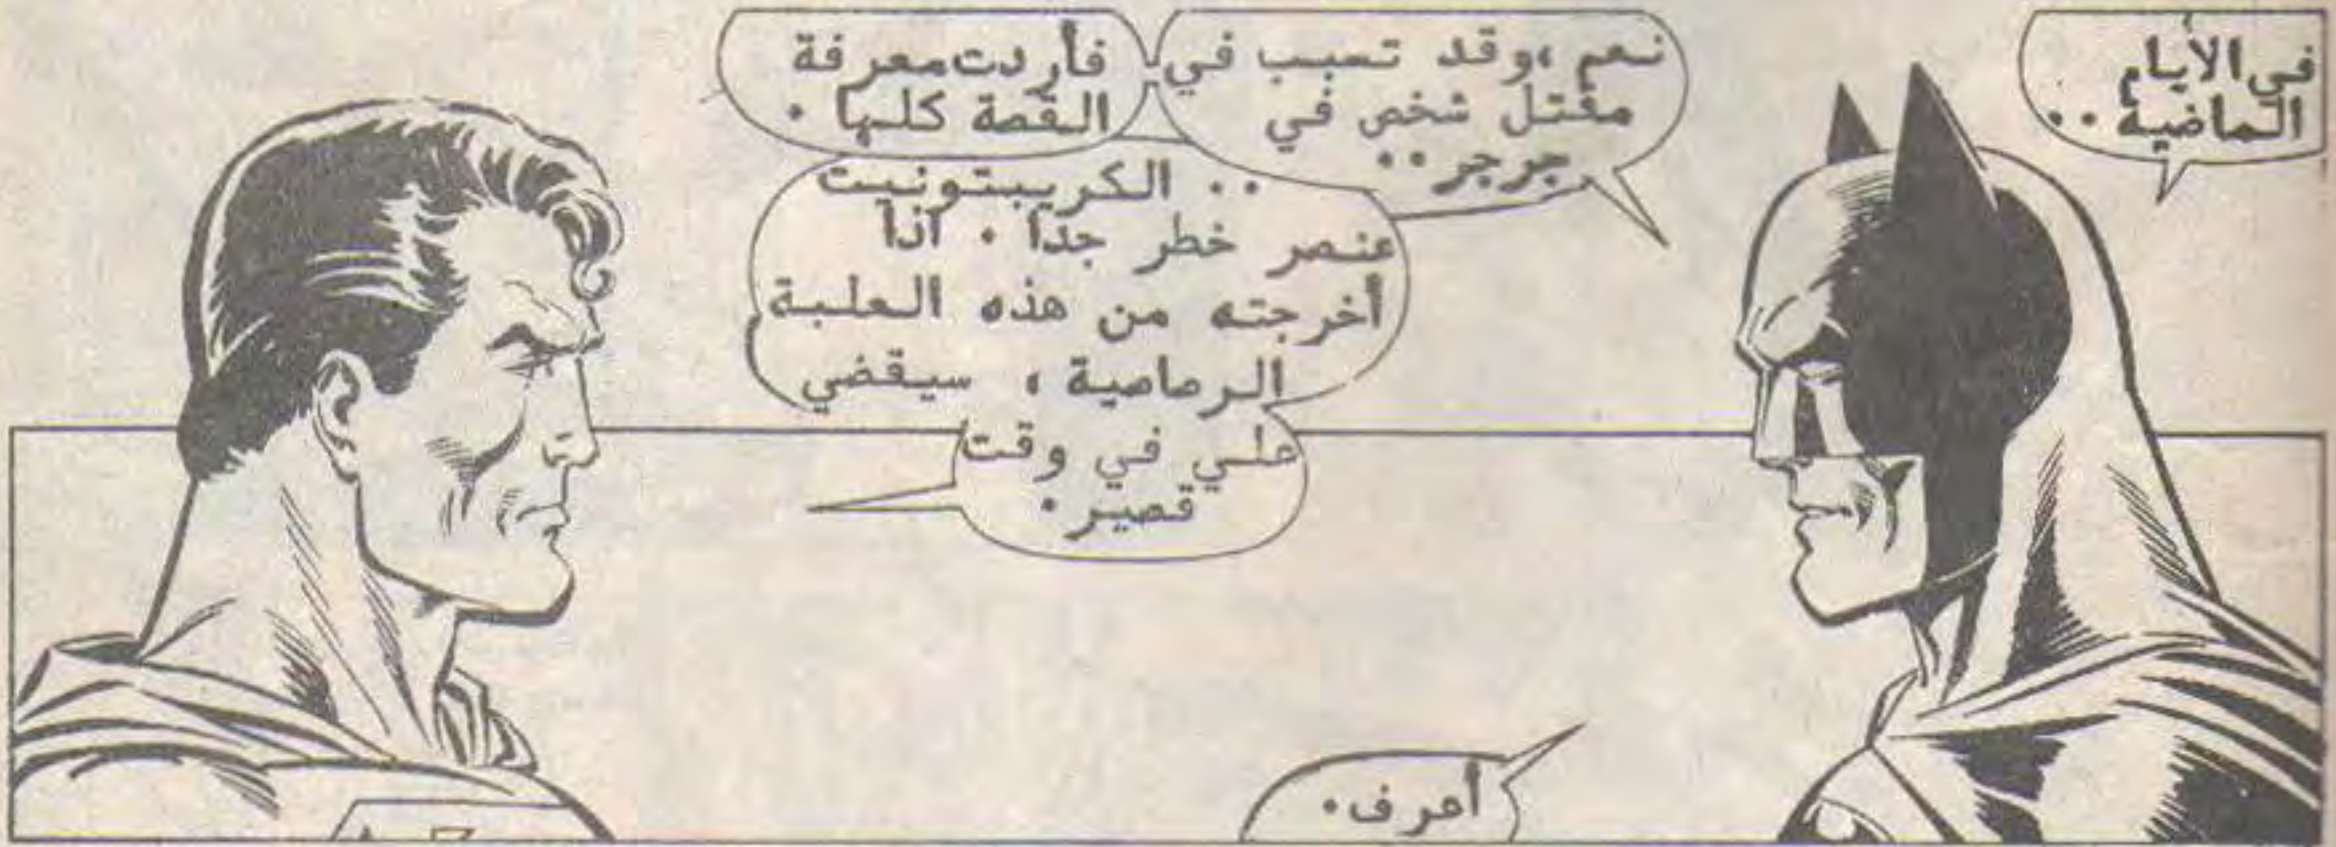 في الأيام
الماضية ..
نعم ، وقد تسبب في
مقتل شخص في
جرجر ..
فأردت معرفة
القصة كلها .
.. الكريبتونيت
عنصر خطر جداً . اذا
أخرجته من هذه العلبة
الرصاصية ، سيقضي
علي في وقت
قصير .
أعرف .